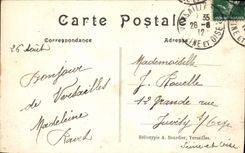 Carte Postale
Correspondance
Adresse
26 août
Bonjour
de Versailles
Madeleine
Mademoiselle
J. Rouelle
12 grande rue
Juvisy s/Orge
Seine et Oise
35
26-8
12
ET OISE
Héliotypie A. Bourdier, Versailles.